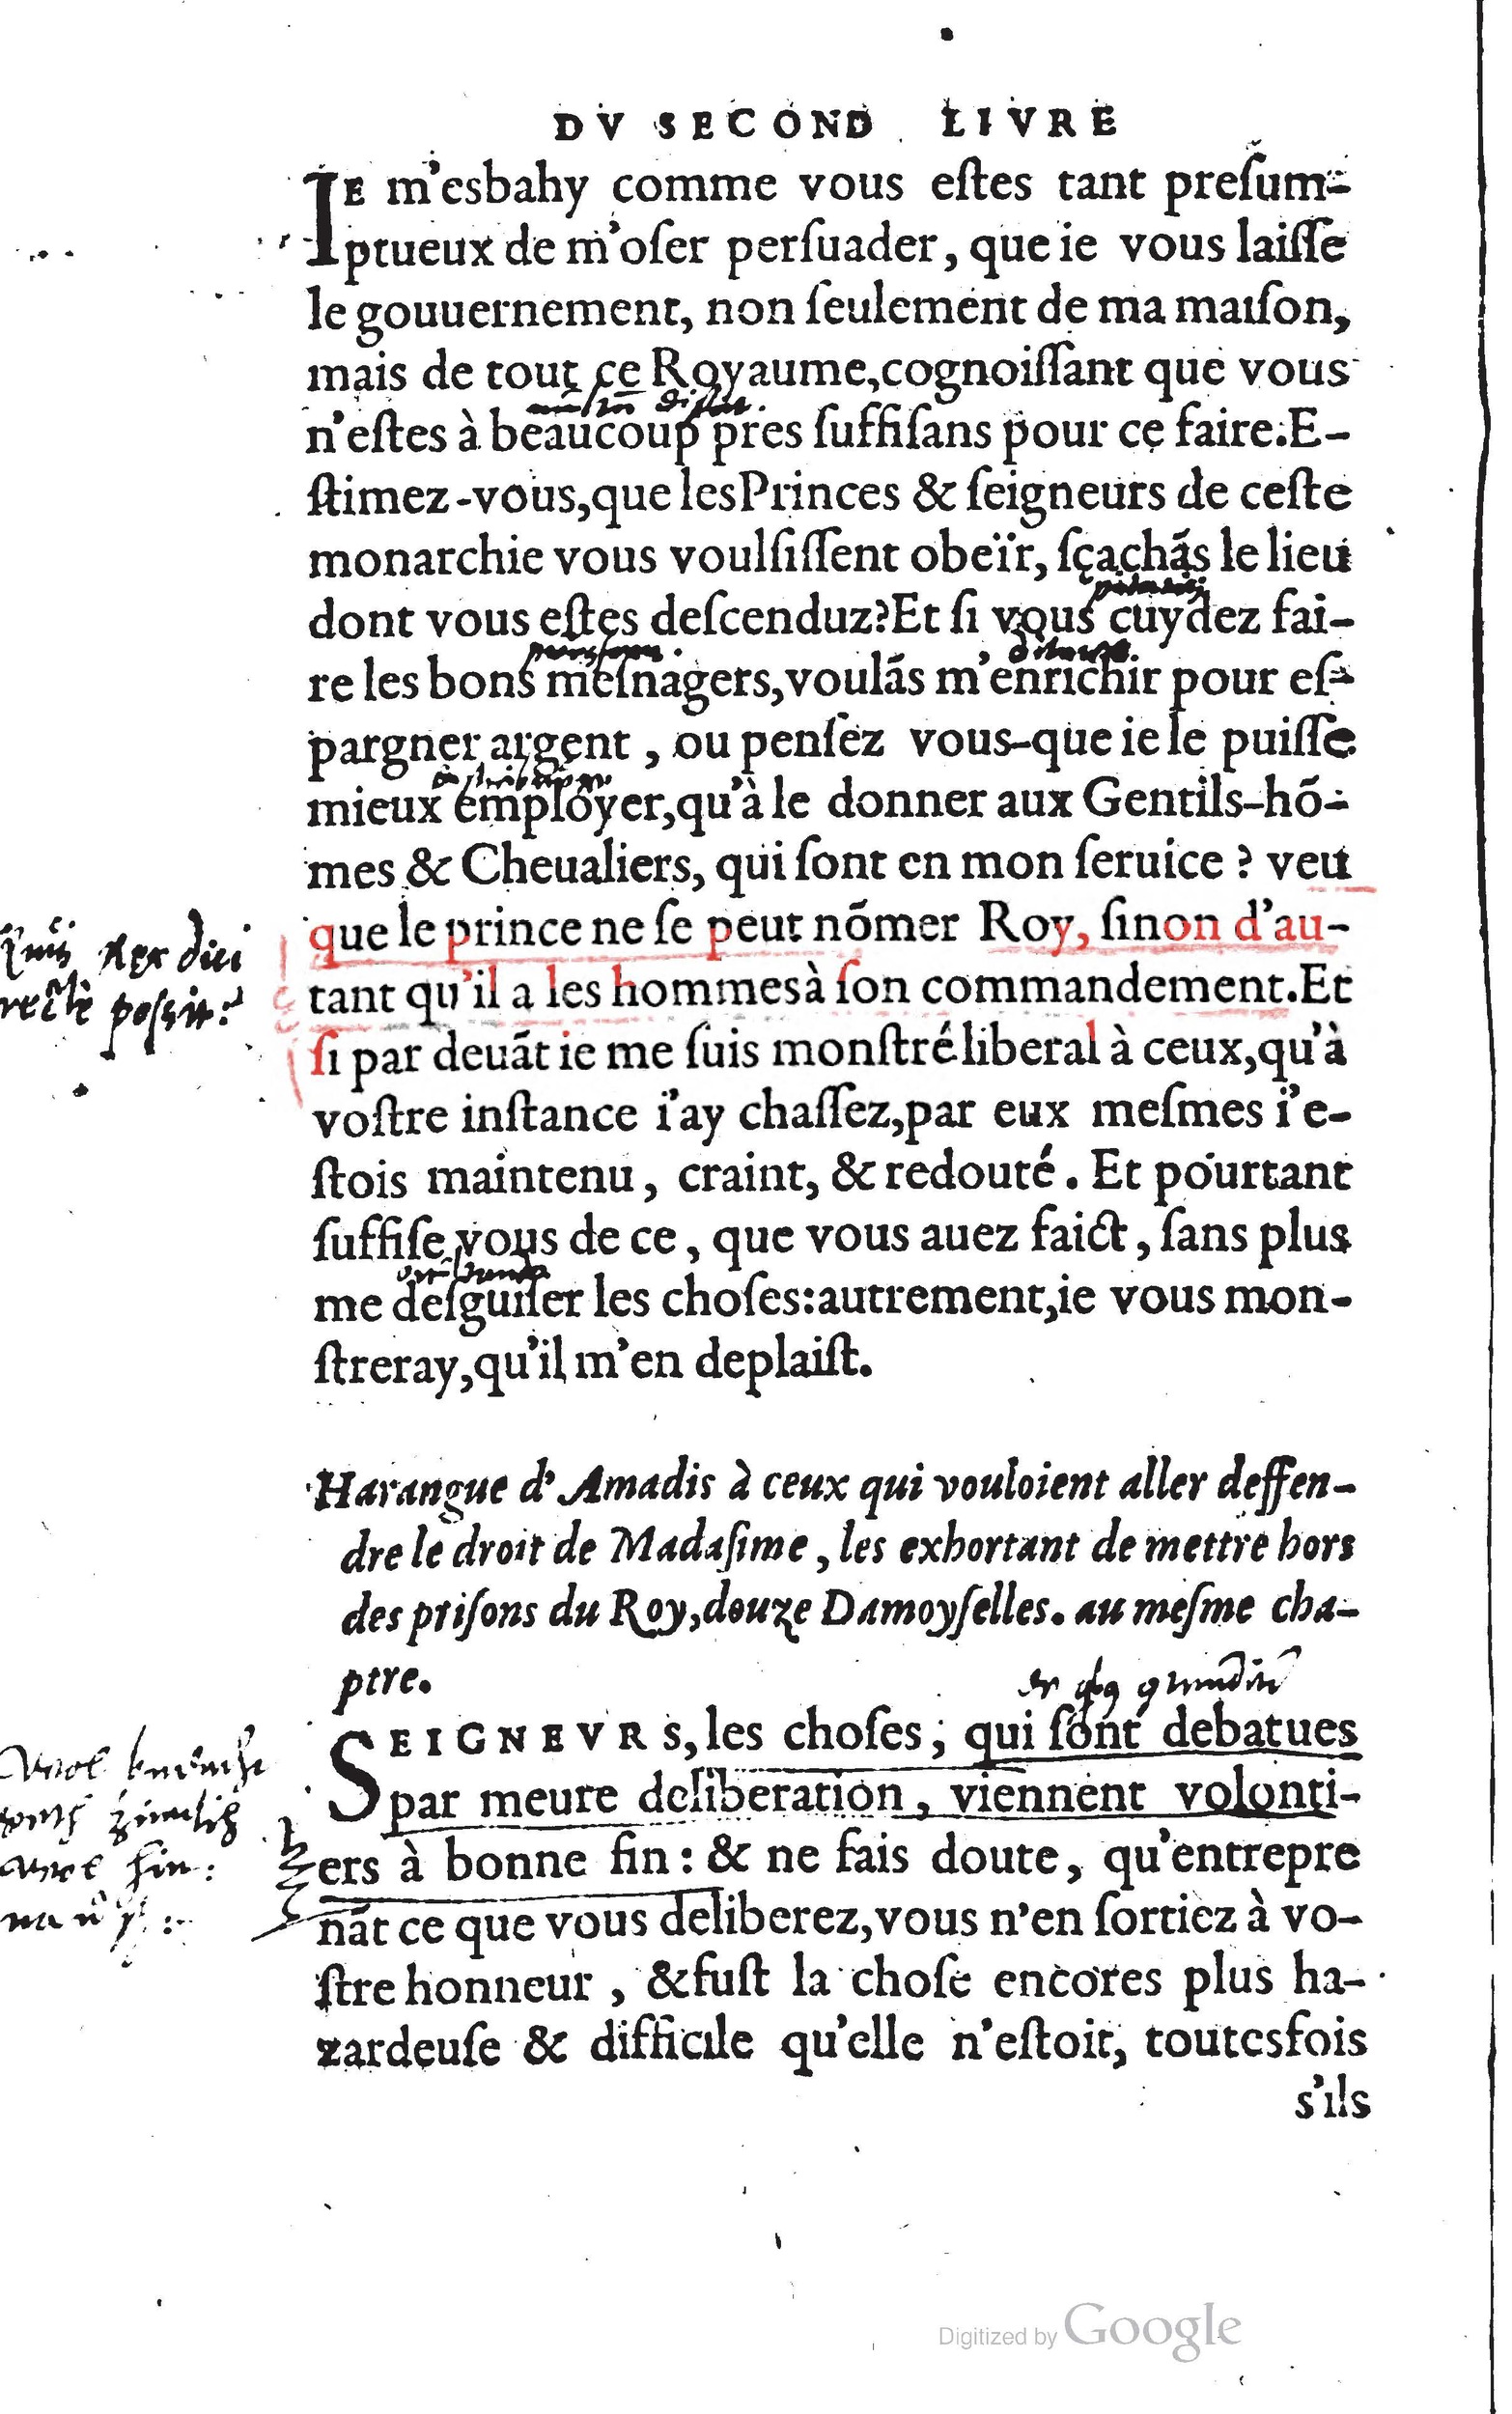 DV SECOND LIVRE
IE m'esbahy comme vous eſtes tant preſum-
ptueux de m'oſer perſuader, que ie vous laiſſe
le gouuernement, non ſeulement de ma maiſon,
mais de tout ce Royaume,cognoiſſant que vous
n'eſtes à beaucoup pres ſuffiſans pour ce faire.E-
ſtimez-vous,que lesPrinces & ſeigneurs de ceſte
monarchie vous voulſiſſent obeïr, ſçachãs le lieu
dont vous eſtes deſcenduz?Et ſi vous cuydez fai-
re les bons meſnagers,voulãs m'enrichir pour eſ-
pargner argent, ou penſez vous-que ie le puiſſe
mieux employer,qu'à le donner aux Gentils-hõ-
mes & Cheualiers, qui ſont en mon ſeruice ? veu
que le prince ne ſe peut nõmer Roy, ſinon d'au-
Rex dici
tant qu'il a les hommes à ſon commandement.Et
possit?
ſi par deuãt ie me ſuis monſtré liberal à ceux,qu'à
voſtre inſtance i'ay chaſſez,par eux meſmes i'e-
ſtois maintenu, craint, & redouté. Et pourtant
ſuffiſe vous de ce, que vous auez faict, ſans plus
me deſguiſer les choſes:autrement,ie vous mon-
ſtreray,qu'il m'en deplaiſt.
Harangue d'Amadis à ceux qui vouloient aller deffen-
dre le droit de Madaſime, les exhortant de mettre hors
des priſons du Roy,douze Damoyſelles. au meſme cha-
ptre.
SEIGNEVRS, les choſes, qui ſont debatues
par meure deliberation, viennent volonti-
ers à bonne fin: & ne fais doute, qu'entrepre
nãt ce que vous deliberez,vous n'en ſortiez à vo-
ſtre honneur, &fuſt la choſe encores plus ha-
zardeuſe & difficile qu'elle n'eſtoit, toutesfois
s'ils
Digitized by Google